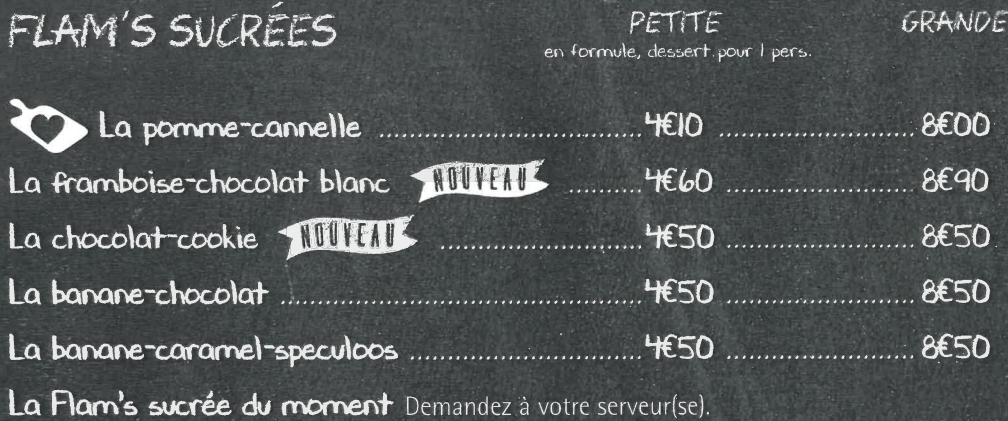 FLAM'S SUCRÉES PETITE GRANDE
en formule, dessert pour 1 pers.
La pomme-cannelle ........ 4€10 ........ 8€00
La framboise-chocolat blanc NOUVEAU ........ 4€60 ........ 8€90
La chocolat-cookie NOUVEAU ........ 4€50 ........ 8€50
La banane-chocolat ........ 4€50 ........ 8€50
La banane-caramel-speculoos ........ 4€50 ........ 8€50
La Flam's sucrée du moment Demandez à votre serveur(se).